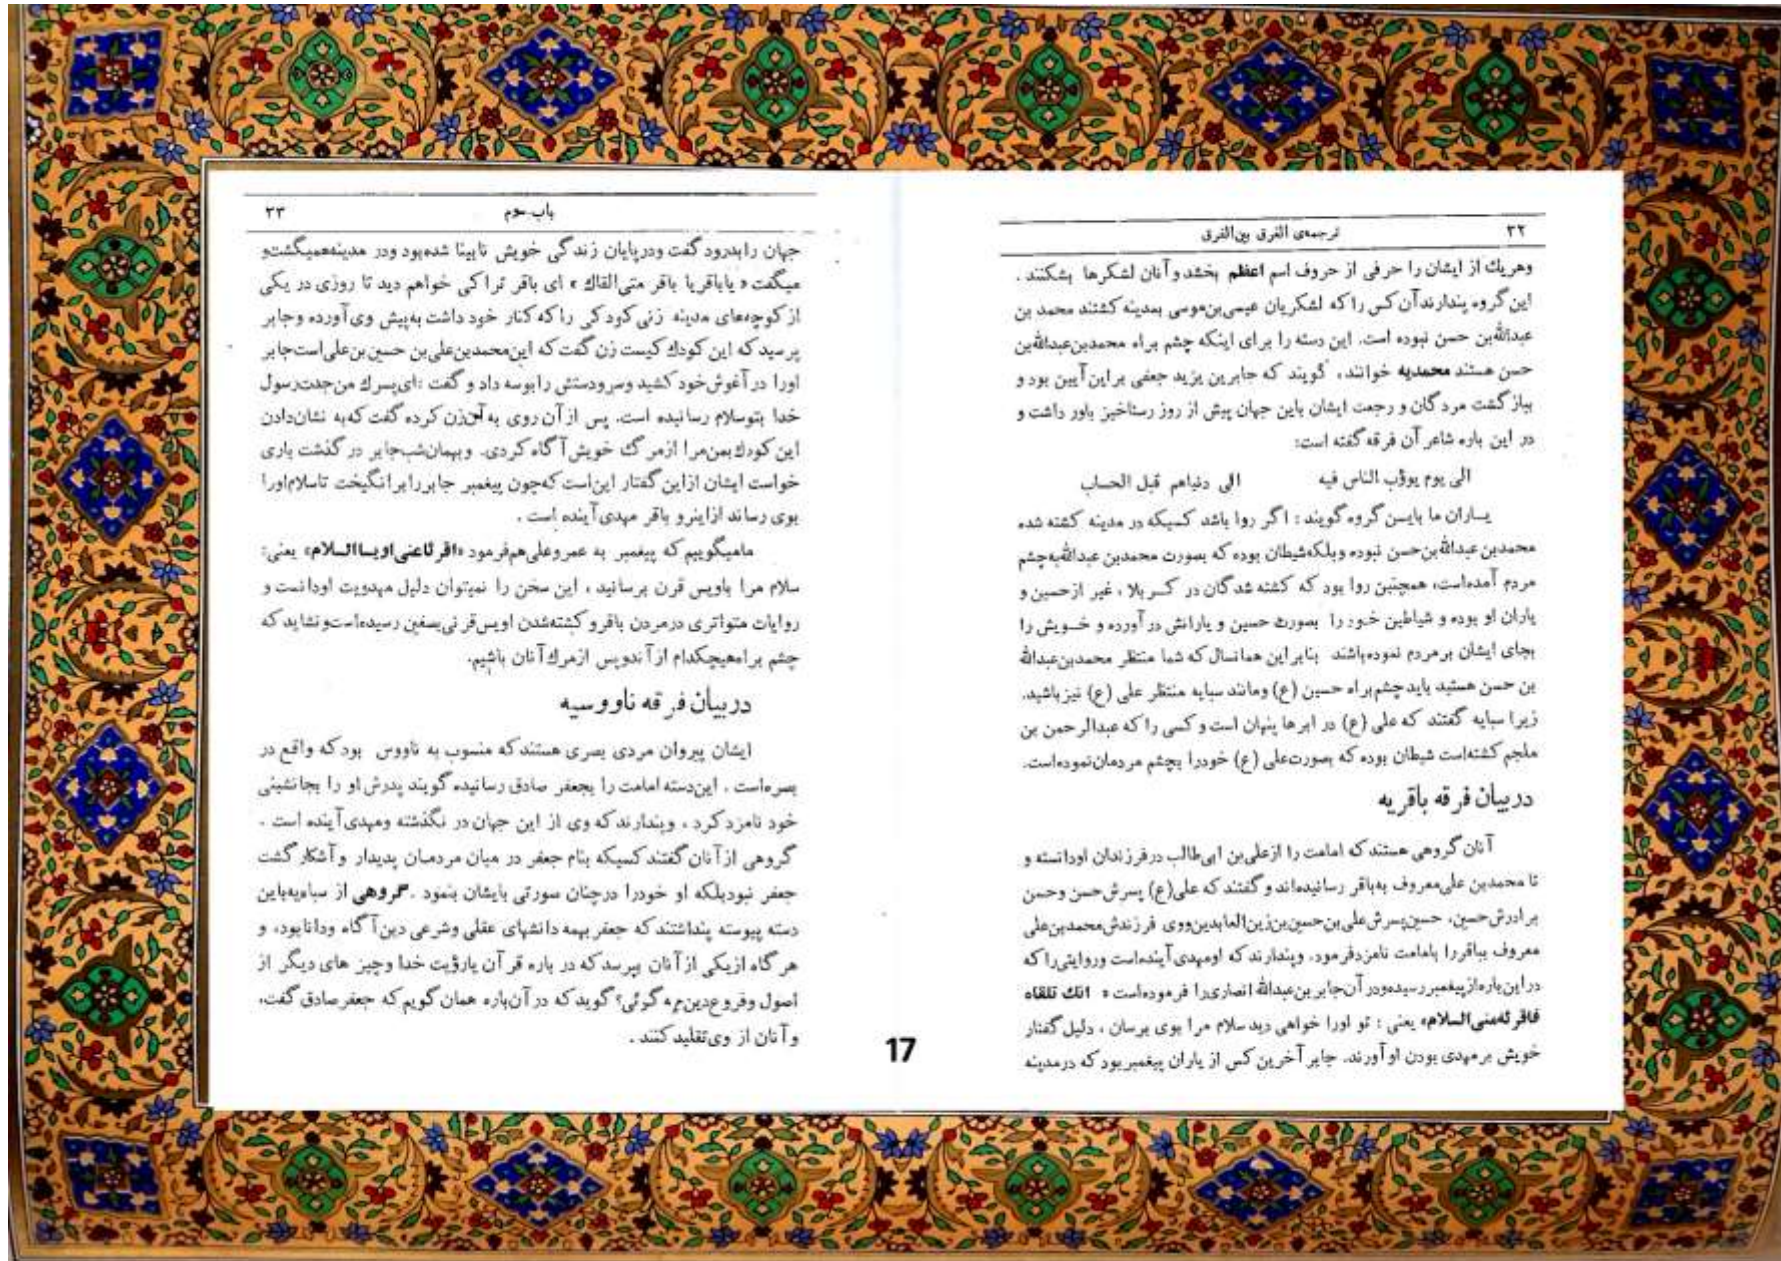 ۳۲
ترجمه‌ی الفرق بین‌الفرق
وهریك از ایشان را حرفی از حروف اسم اعظم بخشد و آنان لشکرها بشکنند .
این گروه پندارند آن کس را که لشکریان عیسی‌بن‌موسی بمدینه کشتند محمد بن
عبدالله‌بن حسن نبوده است. این دسته را برای اینکه چشم براه محمدبن‌عبدالله‌بن
حسن هستند محمدیه خوانند، گویند که جابربن یزید جعفی براین آیین بود و
بباز گشت مردگان و رجعت ایشان باین جهان پیش از روز رستاخیز باور داشت و
در این باره شاعر آن فرقه گفته است:
الی یوم یوؤب الناس فیه الی دنیاهم قبل الحساب
یـاران ما بایـن گروه گویند : اگر روا باشد کسیکه در مدینه کشته شده
محمدبن عبدالله‌بن‌حسن نبوده وبلکه‌شیطان بوده که بصورت محمدبن عبدالله‌به‌چشم
مردم آمده‌است، همچنین روا بود که کشته شدگان در کـربلا ، غیر ازحسین و
یاران او بوده و شیاطین خـود را بصورت حسین و یارانش در آورده و خـویش را
بجای ایشان بر مردم نموده‌باشند بنابر این همانسال که شما منتظر محمدبن‌عبدالله
بن حسن هستید باید چشم‌براه حسین (ع) ومانند سبایه منتظر علی (ع) نیز باشید.
زیرا سبایه گفتند که علی (ع) در ابرها پنهان است و کسی را که عبدالرحمن بن
ملجم کشته‌است شیطان بوده که بصورت‌علی (ع) خودرا بچشم مردمان‌نموده‌است.
در بیان فرقه باقریه
آنان گروهی هستند که امامت را از علی‌بن ابی‌طالب در فرزندان اودانسته و
تا محمدبن علی‌معروف به‌باقر رسانیده‌اند و گفتند که علی(ع) پسرش حسن وحسن
برادرش حسین، حسین‌پسرش علی‌بن‌حسین‌بن‌زین‌العابدین‌ووی فرزندش‌محمدبن‌علی
معروف بباقررا بامامت نامزدفرمود. وپندارند که اومهدی‌آینده‌است وروایتی‌را که
در این‌باره‌از پیغمبر رسیده‌ودر آن‌جابر بن‌عبدالله انصاری‌را فرموده‌است « انك تلقاه
فاقرئه‌منی‌السلام» یعنی : تو اورا خواهی دید سلام مرا بوی برسان ، دلیل گفتار
خویش بر مهدی بودن او آورند. جابر آخرین کس از یاران پیغمبر بود که در مدینه
باب سوم
۳۳
جهان را بدرود گفت ودر پایان زندگی خویش نابینا شده‌بود ودر مدینه‌همیگشت‌و
میگفت « یاباقر یا باقر متی‌القاك » ای باقر ترا کی خواهم دید تا روزی در یکی
از کوچه‌های مدینه زنی کودکی را که کنار خود داشت به‌پیش وی آورده وجابر
پرسید که این کودك کیست زن گفت که این‌محمدبن‌علی‌بن حسین‌بن‌علی‌است‌جابر
اورا در آغوش خود کشید وسرودستش رابوسه داد و گفت :ای‌پسرك من‌جدت‌رسول
خدا بتوسلام رسانیده است. پس از آن روی به آن‌زن کرده گفت که‌به نشان‌دادن
این کودك بمن‌مرا ازمرگ خویش آگاه کردی. وبهمان‌شب‌جابر در گذشت باری
خواست ایشان ازاین گفتار این‌است که‌چون پیغمبر جابررا برانگیخت تاسلام‌اورا
بوی رساند ازاینرو باقر مهدی آینده است .
مامیگوییم که پیغمبر به عمروعلی‌هم‌فرمود «اقرئاعنی‌اویسا‌السلام» یعنی:
سلام مرا باویس قرن برسانید ، این سخن را نمیتوان دلیل مهدویت اودانست و
روایات متواتری درمردن باقرو کشته‌شدن اویس‌قرنی‌بصفین رسیده‌است‌ونشاید که
چشم براه‌هیچکدام از آندوپس ازمرك آنان باشیم.
در بیان فرقه ناووسیه
ایشان پیروان مردی بصری هستند که منسوب به ناووس بود که واقع در
بصره‌است . این‌دسته امامت را بجعفر صادق رسانیده گویند پدرش او را بجانشینی
خود نامزد کرد ، وپندارند که وی از این جهان در نگذشته ومهدی آینده است .
گروهی از آنان گفتند کسیکه بنام جعفر در میان مردمـان پدیدار و آشکار گشت
جعفر نبودبلکه او خودرا درچنان صورتی بایشان بنمود . گروهی از سبایه‌باین
دسته پیوسته پنداشتند که جعفر بهمه دانشهای عقلی وشرعی دین آگاه ودانابود، و
هر گاه از یکی از آنان بپرسد که در باره قرآن یارؤیت خدا وچیز های دیگر از
اصول وفروع‌دین‌چه گوئی؟ گوید که در آن‌باره همان گویم که جعفر صادق گفت،
و آنان از وی تقلید کنند .
17